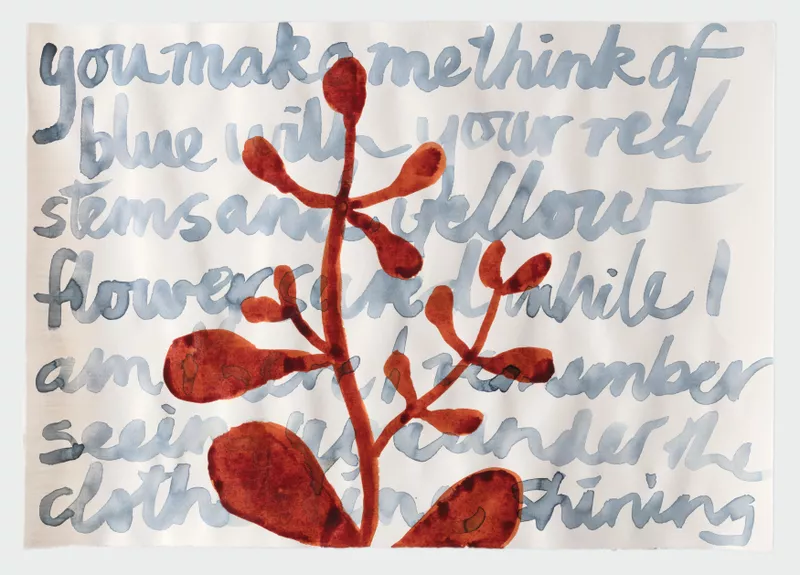 you make me think of
blue with your red
stems and yellow
flowers and while I
am here I remember
seeing you under the
shining